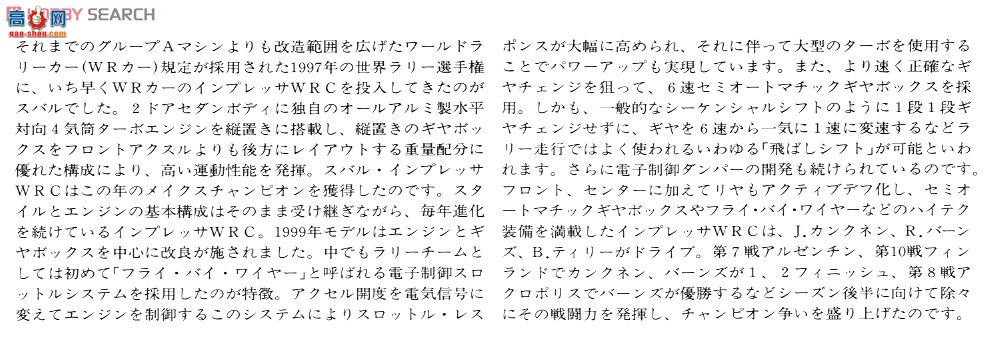 HOBBY SEARCH
高网
gao-shou.com
それまでのグループAマシンよりも改造範囲を広げたワールドラ
リーカー(WRカー)規定が採用された1997年の世界ラリー選手権
に、いち早くWRカーのインプレッサWRCを投入してきたのが
スバルでした。2ドアセダンボディに独自のオールアルミ製水平
対向4気筒ターボエンジンを縦置きに搭載し、縦置きのギヤボッ
クスをフロントアクスルよりも後方にレイアウトする重量配分に
優れた構成により、高い運動性能を発揮。スバル・インプレッサ
WRCはこの年のメイクスチャンピオンを獲得したのです。スタ
イルとエンジンの基本構成はそのまま受け継ぎながら、毎年進化
を続けているインプレッサWRC。1999年モデルはエンジンとギ
ヤボックスを中心に改良が施されました。中でもラリーチームと
しては初めて「フライ・バイ・ワイヤー」と呼ばれる電子制御スロ
ットルシステムを採用したのが特徴。アクセル開度を電気信号に
変えてエンジンを制御するこのシステムによりスロットル・レス
ポンスが大幅に高められ、それに伴って大型のターボを使用する
ことでパワーアップも実現しています。また、より速く正確なギ
ヤチェンジを狙って、6速セミオートマチックギヤボックスを採
用。しかも、一般的なシーケンシャルシフトのように1段1段ギ
ヤチェンジせずに、ギヤを6速から一気に1速に変速するなどラ
リー走行ではよく使われるいわゆる「飛ばしシフト」が可能といわ
れます。さらに電子制御ダンパーの開発も続けられているのです。
フロント、センターに加えてリヤもアクティブデフ化し、セミオ
ートマチックギヤボックスやフライ・バイ・ワイヤーなどのハイテク
装備を満載したインプレッサWRCは、J.カンクネン、R.バーン
ズ、B.ティリーがドライブ。第7戦アルゼンチン、第10戦フィン
ランドでカンクネン、バーンズが1、2フィニッシュ、第8戦ア
クロポリスでバーンズが優勝するなどシーズン後半に向けて除々
にその戦闘力を発揮し、チャンピオン争いを盛り上げたのです。